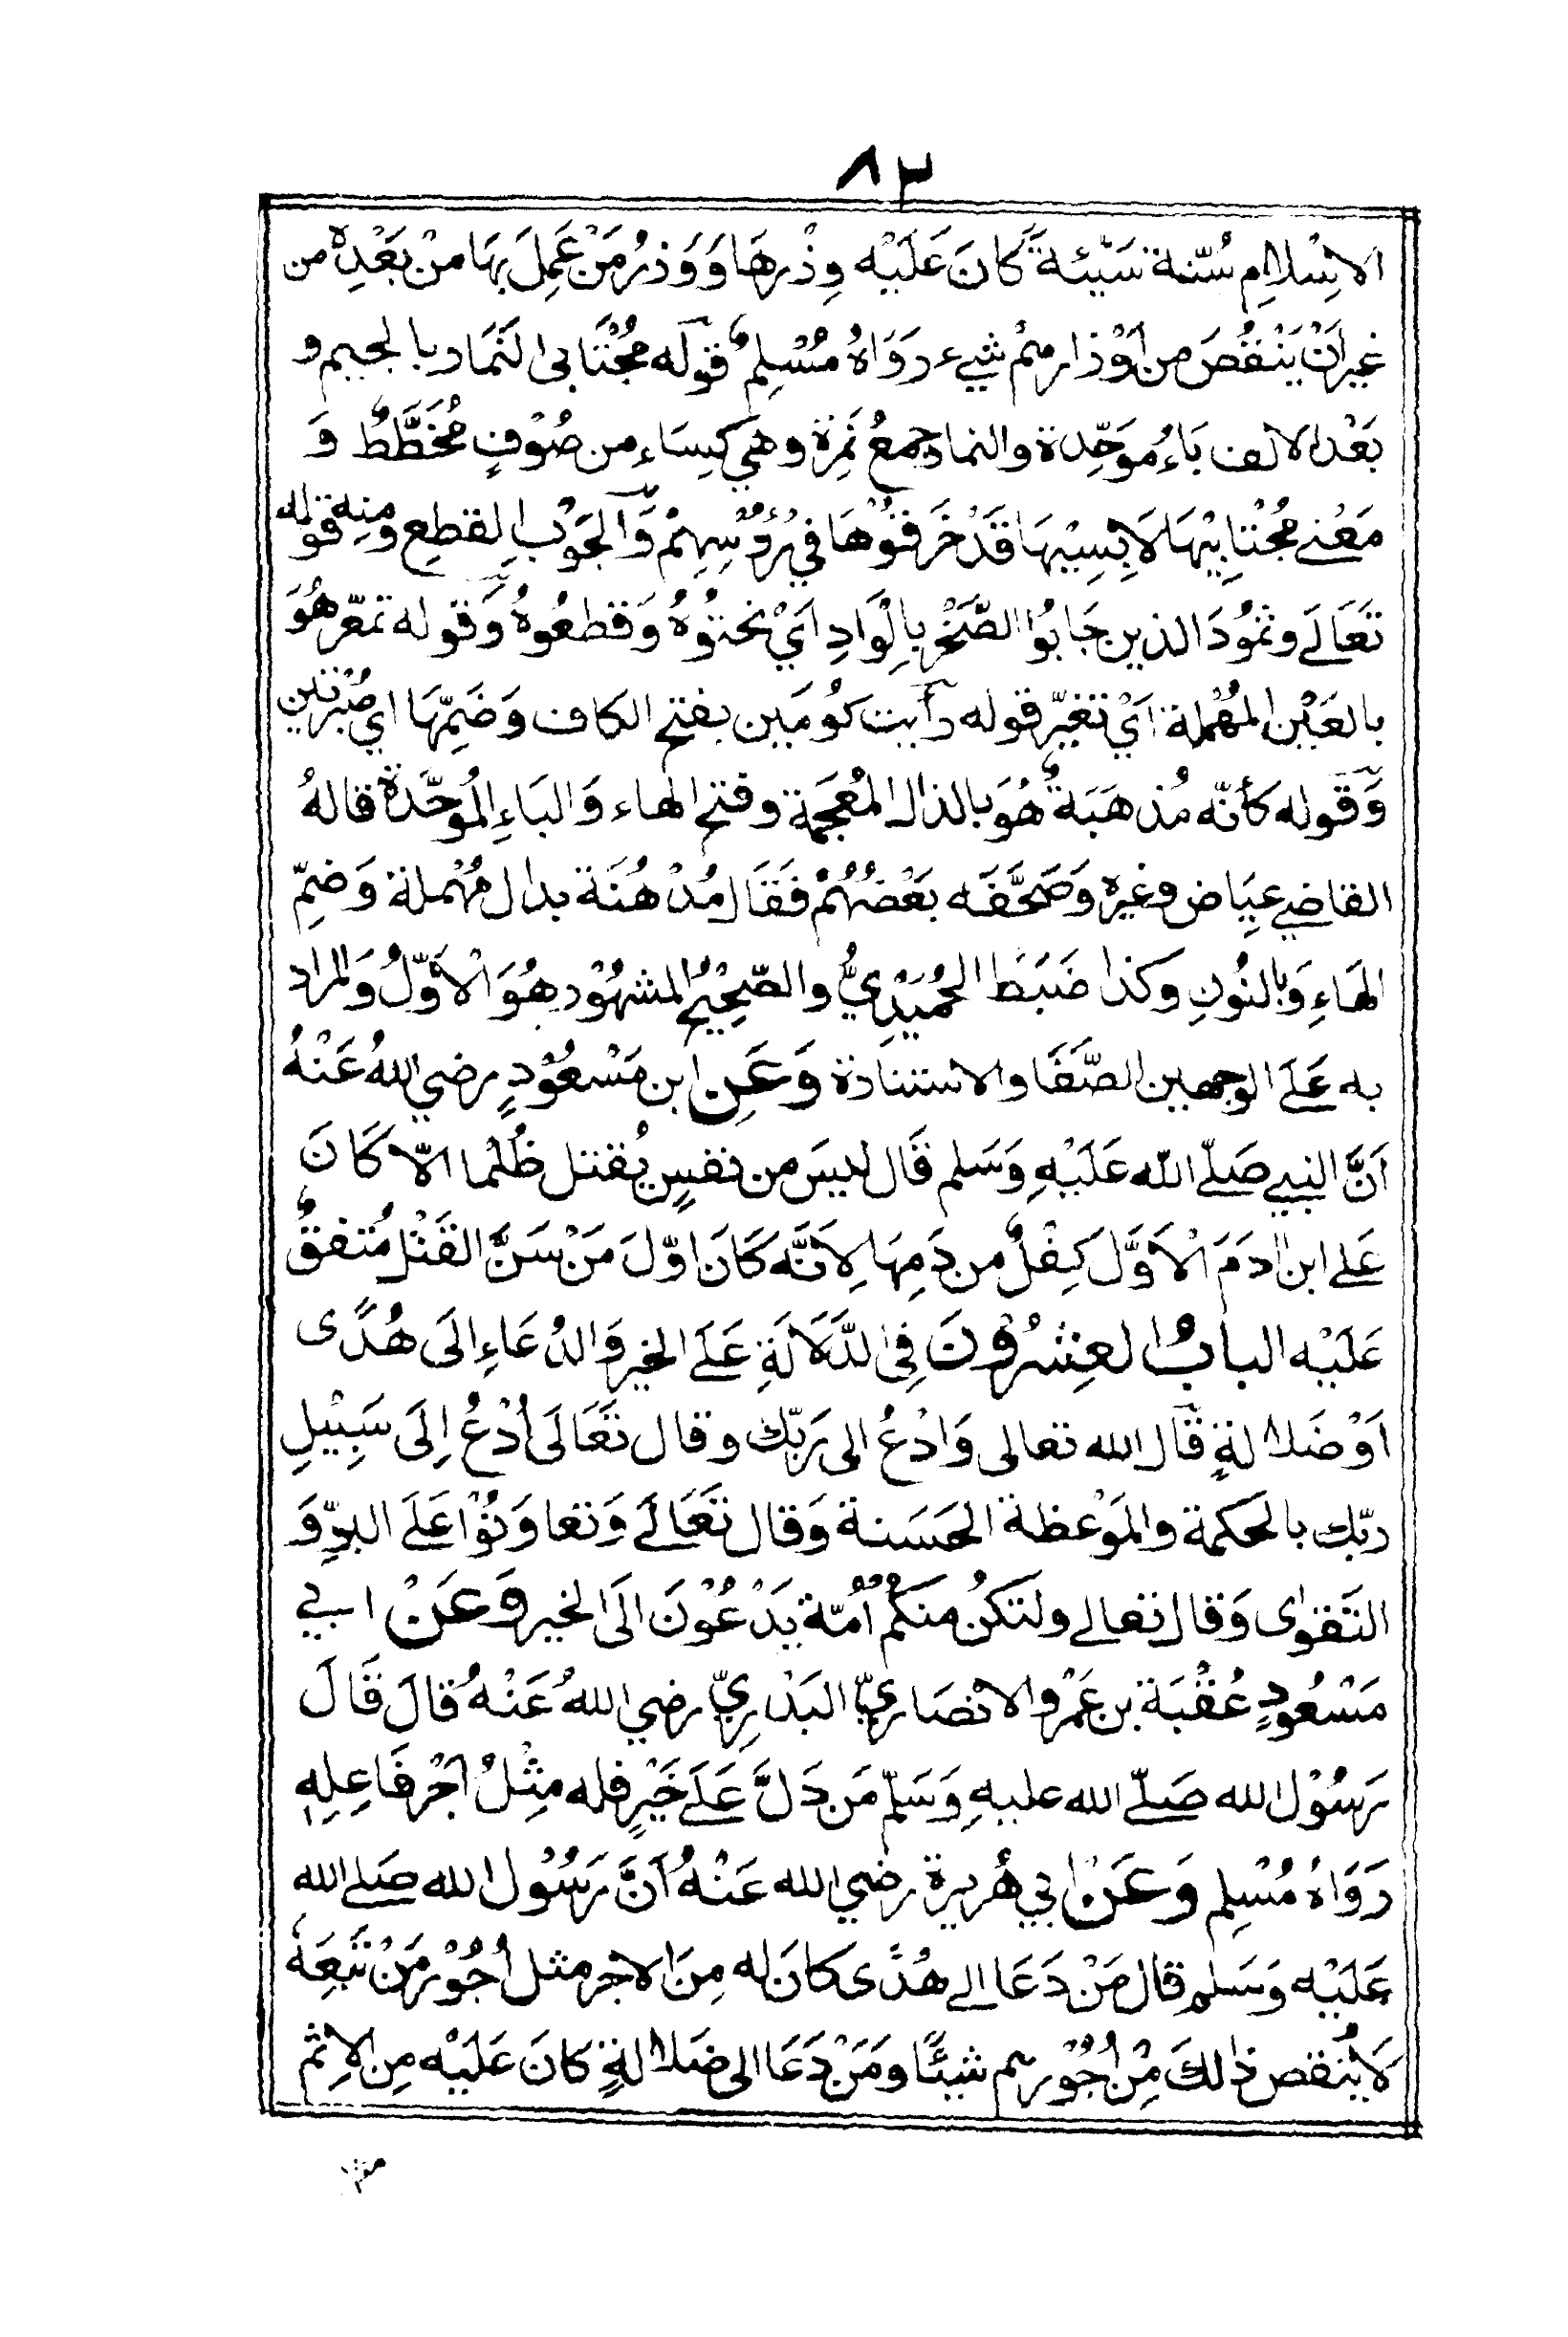 ٨٢
الاِسْلامِ سُنّة سَيّئةً كَانَ عَلَيْه وِذْرهَا وَوَذرُ مَنْ عَمِلَ بِهَا مِنْ بَعْدِهٖ من
غيرِ اَنْ يَنْقُصَ من اَوْذارهِمْ شيءٌ رَوَاهُ مُسْلِمٌ قوله مُجْتَابى النَمَار با لجيم و
بَعْد الا لف بَاءٌ مُوَحِّدة والنمار جمعُ نَمِرة وهي كِسَاء من صُوْفٍ مُخَطَّطٌ وَ
مَعْنے مُجْتَابِيْهَا لَابِسِيْهَا قَدْ خَرَقوْهَا في رُؤُسِهِمْ وَالجَوْبُ القطعِ ومنه قوله
تَعَالَے وثمُودَ الذين جَابُوا الصَّخْرَ بِالْوَادِ اَيْ نحتُوْهُ وَقطعُوهُ وَقوله تمعّر هُوَ
بالعَيْن المُهْملة اَيْ تغيّر قوله رأيت كُومَين بفتح الكاف وَضَمِّهَا اي صُبْرتين
وَقوله كأنّه مُذهَبَةٌ هُوَ بالذال المُعجَمة وفتح الهاء وَالبَاءِ المُوَحّدة قالهُ
القاضے عِيَاض وغيره وَصَحَّفَه بَعْضُهُمْ فَقَال مُدْهُنَة بدال مُهْملة وَضمِّ
الهَاءِ وَبالنُونِ وكذا ضَبَطَ الحُمَيْدِيُّ والصّحِيْحُ المشهُوْر هُوَ الْاَوّلُ وَالمراد
به عَلَے الوجهين الصَّفَا والاستنارة وَعَنِ ابن مَسْعُوْدٍ رضي اللهُ عَنْهُ
اَنَّ النبي صَلّے اللّه عَلَيْهِ وَسَلم قَال ليسَ من نفسٍ يُقتل ظُلمًا الاّ كَانَ
عَلے ابن اٰدَمَ الْاَوَّلَ كِفْلٌ من دَمِهَا لِاَنَّه كَانَ اوّلَ مَنْ سَنَّ القَتْلَ مُتفقٌ
عَلَيْه البابُ العِشْرُوْنَ فِى الدَّلَالَةِ عَلَے الخير وَالدُعَاءِ اِلَى هُدًى
اَوْ ضَلالةٍ قَال الله تعالى وَادْعُ الى رَبّك وقال تَعَالَى اُدْعُ اِلَى سَبِيْلِ
ربّك بالحكمة والمَوْعظة الحَسَنة وَقال تَعَالَے وَتعاوَنُوْا عَلَے البِرِّ وَ
التَقوٰى وَقال تعالے ولتَكُنْ منكُمْ اُمّة يَدْعُوْنَ اِلَى الخير وَعَنْ ابي
مَسْعُودٍ عُقْبَة بن عَمْرو الانْصَاريّ البَدْرِيّ رضي اللهُ عَنْهُ قالَ قَالَ
رَسُوْل الله صَلّے الله عليهِ وَسَلّم مَن دَلَّ عَلَے خَيْرٍ فله مِثْلُ اَجْر فَاعِلِهٖ
رَوَاهُ مُسْلِم وَعَن اَبي هُريرة رضي الله عَنْهُ اَنَّ رَسُوْل الله صَلے الله
عَلَيْه وَسَلم قال مَنْ دَعَا الے هُدًى كانَ له مِنَ الاجر مثل اُجُوْر مَنْ تَبِعَهٗ
لَا يُنقص ذٰلكَ مِنْ اُجُوْرهم شيئًا ومَنْ دَعَا الى ضَلالةٍ كانَ عَلَيْه مِن الاِثم
مثل